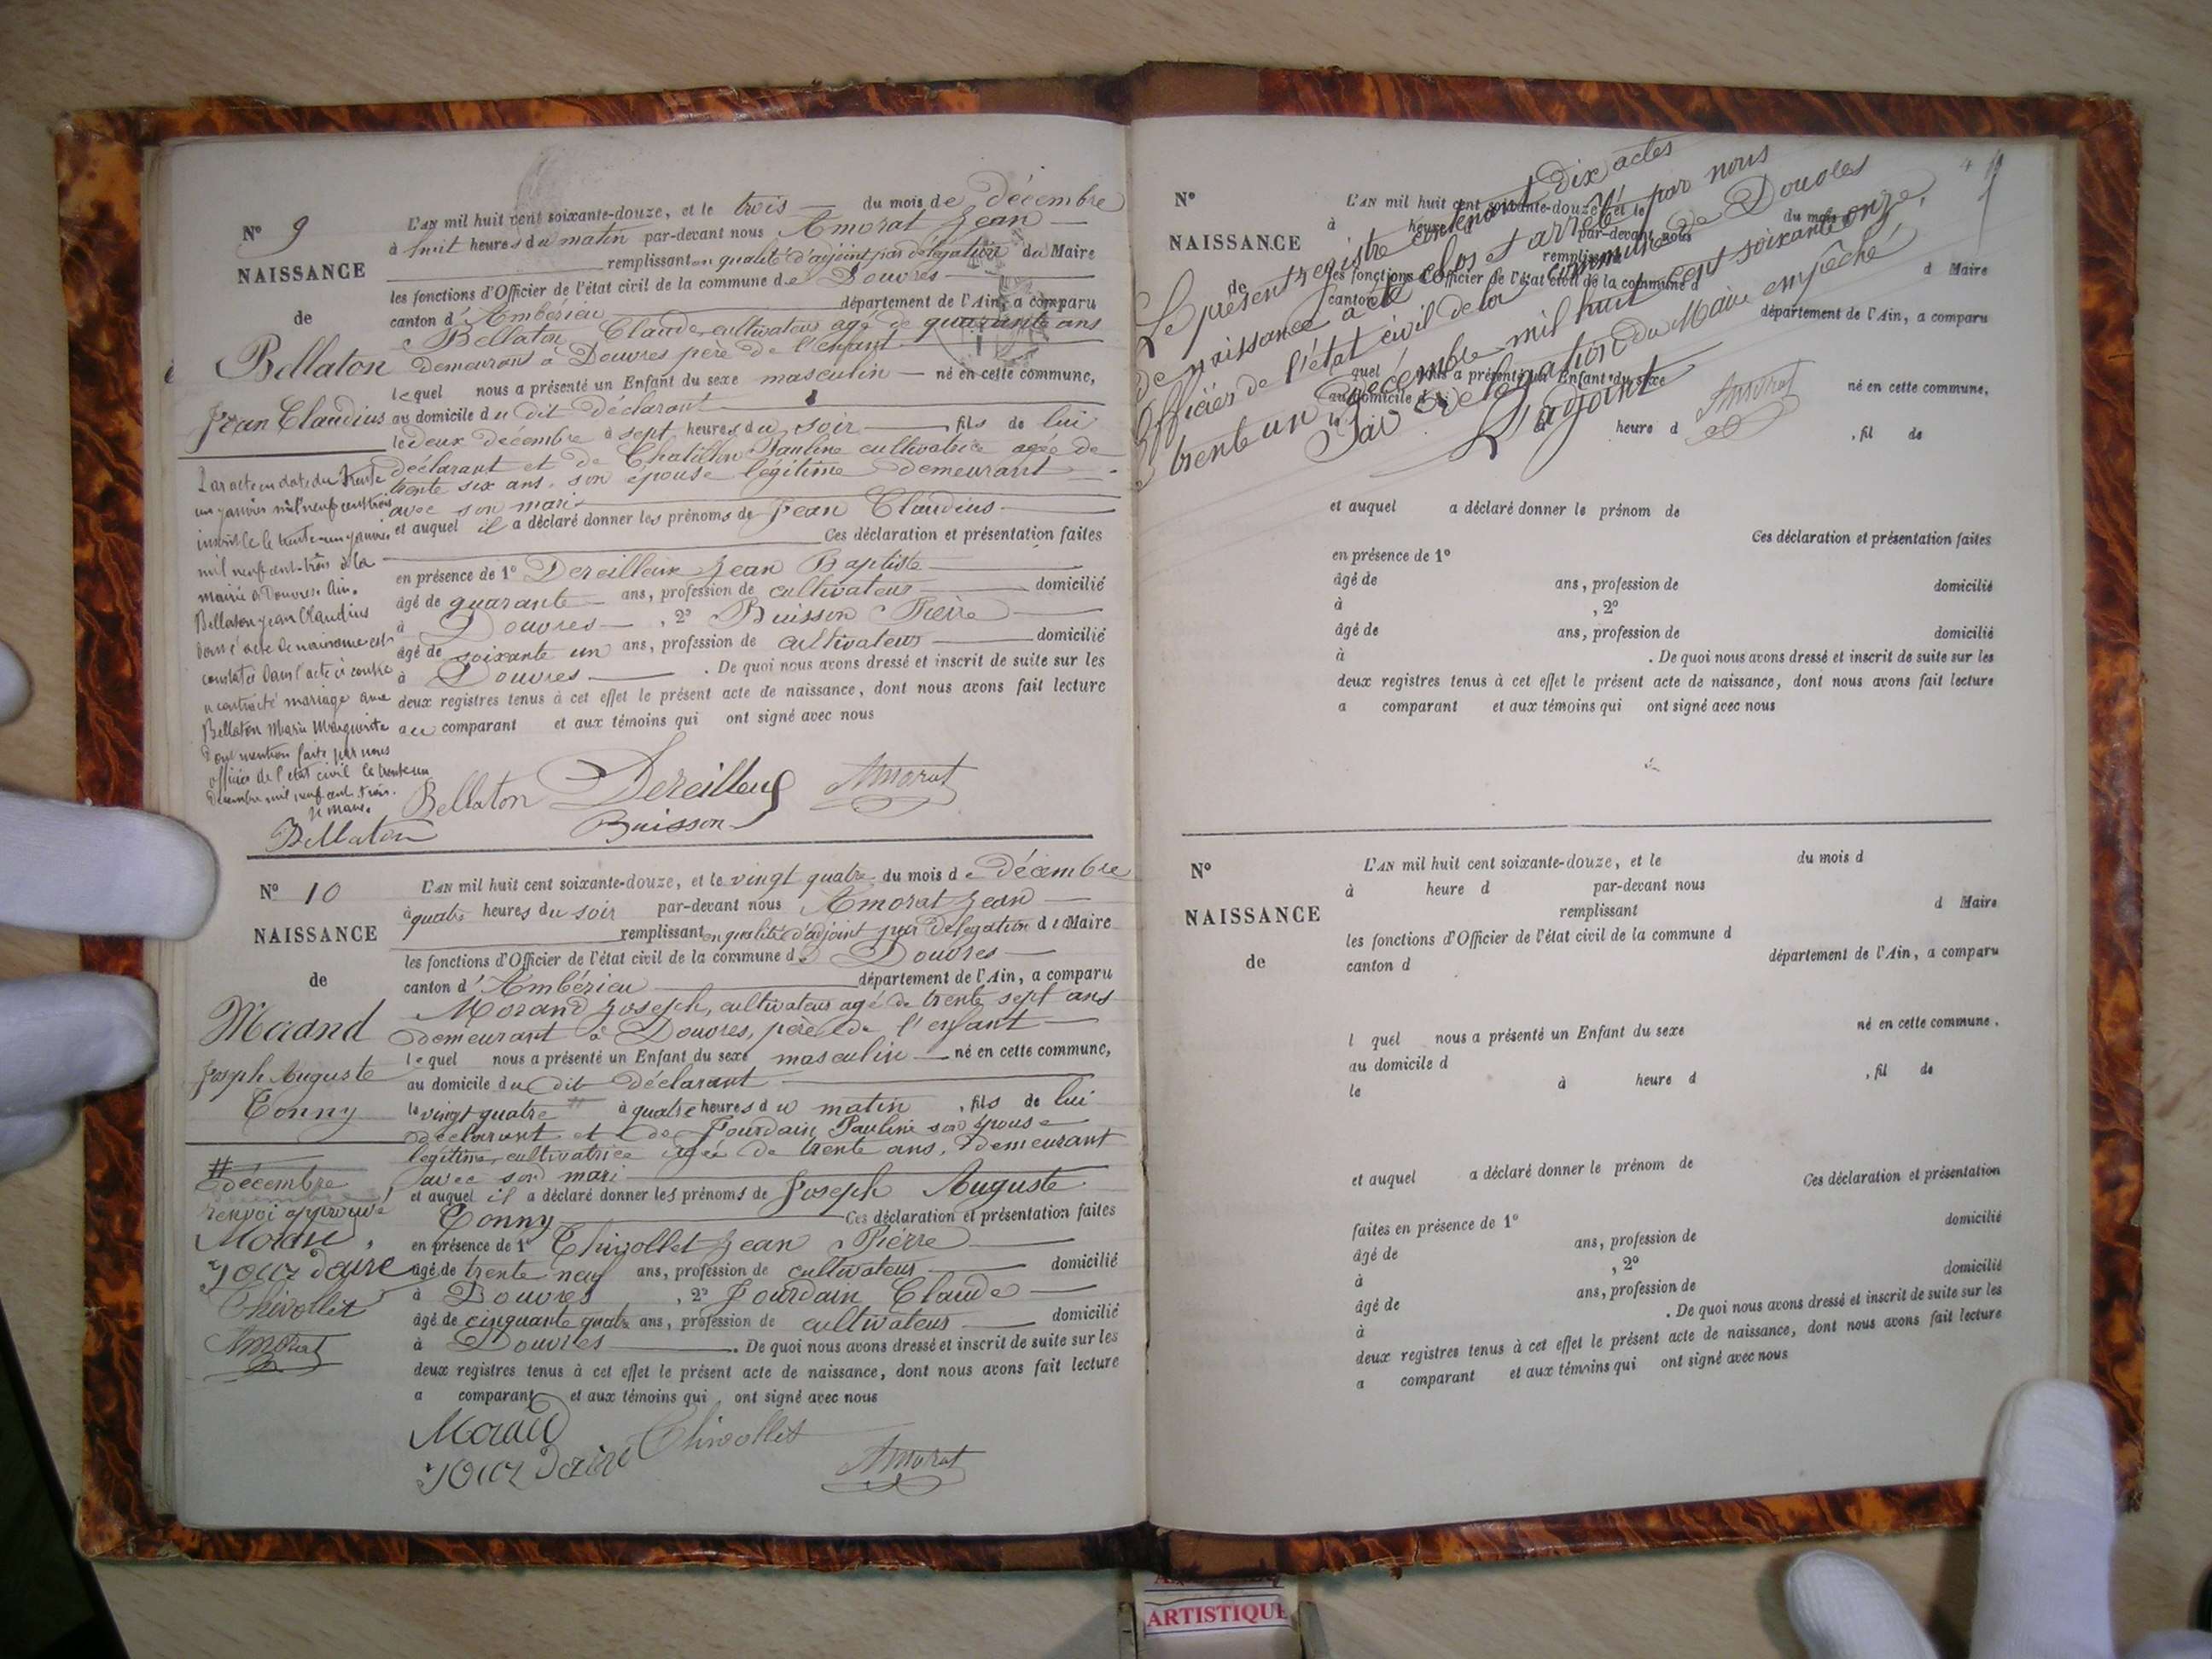 N° 9
NAISSANCE
de
Bellaton
Jean Claudius
L'AN mil huit cent soixante-douze, et le trois du mois de décembre
à huit heures du matin par-devant nous Amorat Jean
remplissant en qualité d'adjoint par délégation du Maire
les fonctions d'Officier de l'état civil de la commune de Douvres
canton d'Ambérieu département de l'Ain, a comparu
Bellaton Claude, cultivateur agé de quarante ans
demeurant à Douvres père de l'enfant
lequel nous a présenté un Enfant du sexe masculin né en cette commune,
au domicile du dit déclarant
le deux décembre à sept heures du soir fils de lui
déclarant et de Chatillon Pauline cultivatrice agée de
trente six ans, son épouse légitime demeurant
avec son mari
et auquel il a déclaré donner les prénoms de Jean Claudius
Ces déclaration et présentation faites
en présence de 1° Dereilleux Jean Baptiste
âgé de quarante ans, profession de cultivateur domicilié
à Douvres, 2° Buisson Pierre
âgé de soixante un ans, profession de cultivateur domicilié
à Douvres. De quoi nous avons dressé et inscrit de suite sur les
deux registres tenus à cet effet le présent acte de naissance, dont nous avons fait lecture
au comparant et aux témoins qui ont signé avec nous
Par acte en date du trente
un janvier mil neuf cent trois
inscrit le trente-un janvier
mil neuf cent-trois à la
mairie de Douvres Ain.
Bellaton Jean Claudius
dont l'acte de naissance est
constaté dans l'acte ci contre
a contracté mariage avec
Bellaton Marie Marguerite
Dont mention faite par nous
officier de l'état civil le trente un
décembre mil neuf cent trois.
le maire.
Bellaton
Bellaton Dereilleux Amorat
Buisson
N° 10
NAISSANCE
de
Morand
Joseph Auguste
Tonny
L'AN mil huit cent soixante-douze, et le vingt quatre du mois de décembre
à quatre heures du soir par-devant nous Amorat Jean
remplissant en qualité d'adjoint par délégation du Maire
les fonctions d'Officier de l'état civil de la commune de Douvres
canton d'Ambérieu département de l'Ain, a comparu
Morand Joseph, cultivateur agé de trente sept ans
demeurant à Douvres, père de l'enfant
lequel nous a présenté un Enfant du sexe masculin né en cette commune,
au domicile du dit déclarant
le vingt quatre # à quatre heures du matin, fils de lui
déclarant et de Jourdain Pauline son épouse
légitime, cultivatrice agée de trente ans, demeurant
avec son mari
et auquel il a déclaré donner les prénoms de Joseph Auguste
Tonny Ces déclaration et présentation faites
en présence de 1° Chivollet Jean Pierre
âgé de trente neuf ans, profession de cultivateur domicilié
à Douvres, 2° Jourdain Claude
âgé de cinquante quatre ans, profession de cultivateur domicilié
à Douvres. De quoi nous avons dressé et inscrit de suite sur les
deux registres tenus à cet effet le présent acte de naissance, dont nous avons fait lecture
a comparant et aux témoins qui ont signé avec nous
# décembre
renvoi approuvé
Morand
Jourdain
Chivollet
Amorat
Morand Chivollet
Jourdain Amorat
Le présent registre contenant Dix actes
de naissance a été clos et arrêté par nous
Officier de l'état civil de la commune de Douvres
trente un décembre mil huit cent soixante onze.
Par délégation du Maire empêché
L'adjoint
Amorat
N°
NAISSANCE
de
L'AN mil huit cent soixante-douze, et le du mois d
à heure d par-devant nous
remplissant d Maire
les fonctions d'Officier de l'état civil de la commune d
canton d département de l'Ain, a comparu
l quel nous a présenté un Enfant du sexe né en cette commune,
au domicile d
le à heure d , fil de
et auquel a déclaré donner le prénom de
Ces déclaration et présentation faites
en présence de 1°
âgé de ans, profession de domicilié
à , 2°
âgé de ans, profession de domicilié
à . De quoi nous avons dressé et inscrit de suite sur les
deux registres tenus à cet effet le présent acte de naissance, dont nous avons fait lecture
a comparant et aux témoins qui ont signé avec nous
N°
NAISSANCE
de
L'AN mil huit cent soixante-douze, et le du mois d
à heure d par-devant nous
remplissant d Maire
les fonctions d'Officier de l'état civil de la commune d
canton d département de l'Ain, a comparu
l quel nous a présenté un Enfant du sexe né en cette commune.
au domicile d
le à heure d , fil de
et auquel a déclaré donner le prénom de
Ces déclaration et présentation
faites en présence de 1° domicilié
âgé de ans, profession de
à , 2° domicilié
âgé de ans, profession de
à . De quoi nous avons dressé et inscrit de suite sur les
deux registres tenus à cet effet le présent acte de naissance, dont nous avons fait lecture
a comparant et aux témoins qui ont signé avec nous
ARTISTIQUE